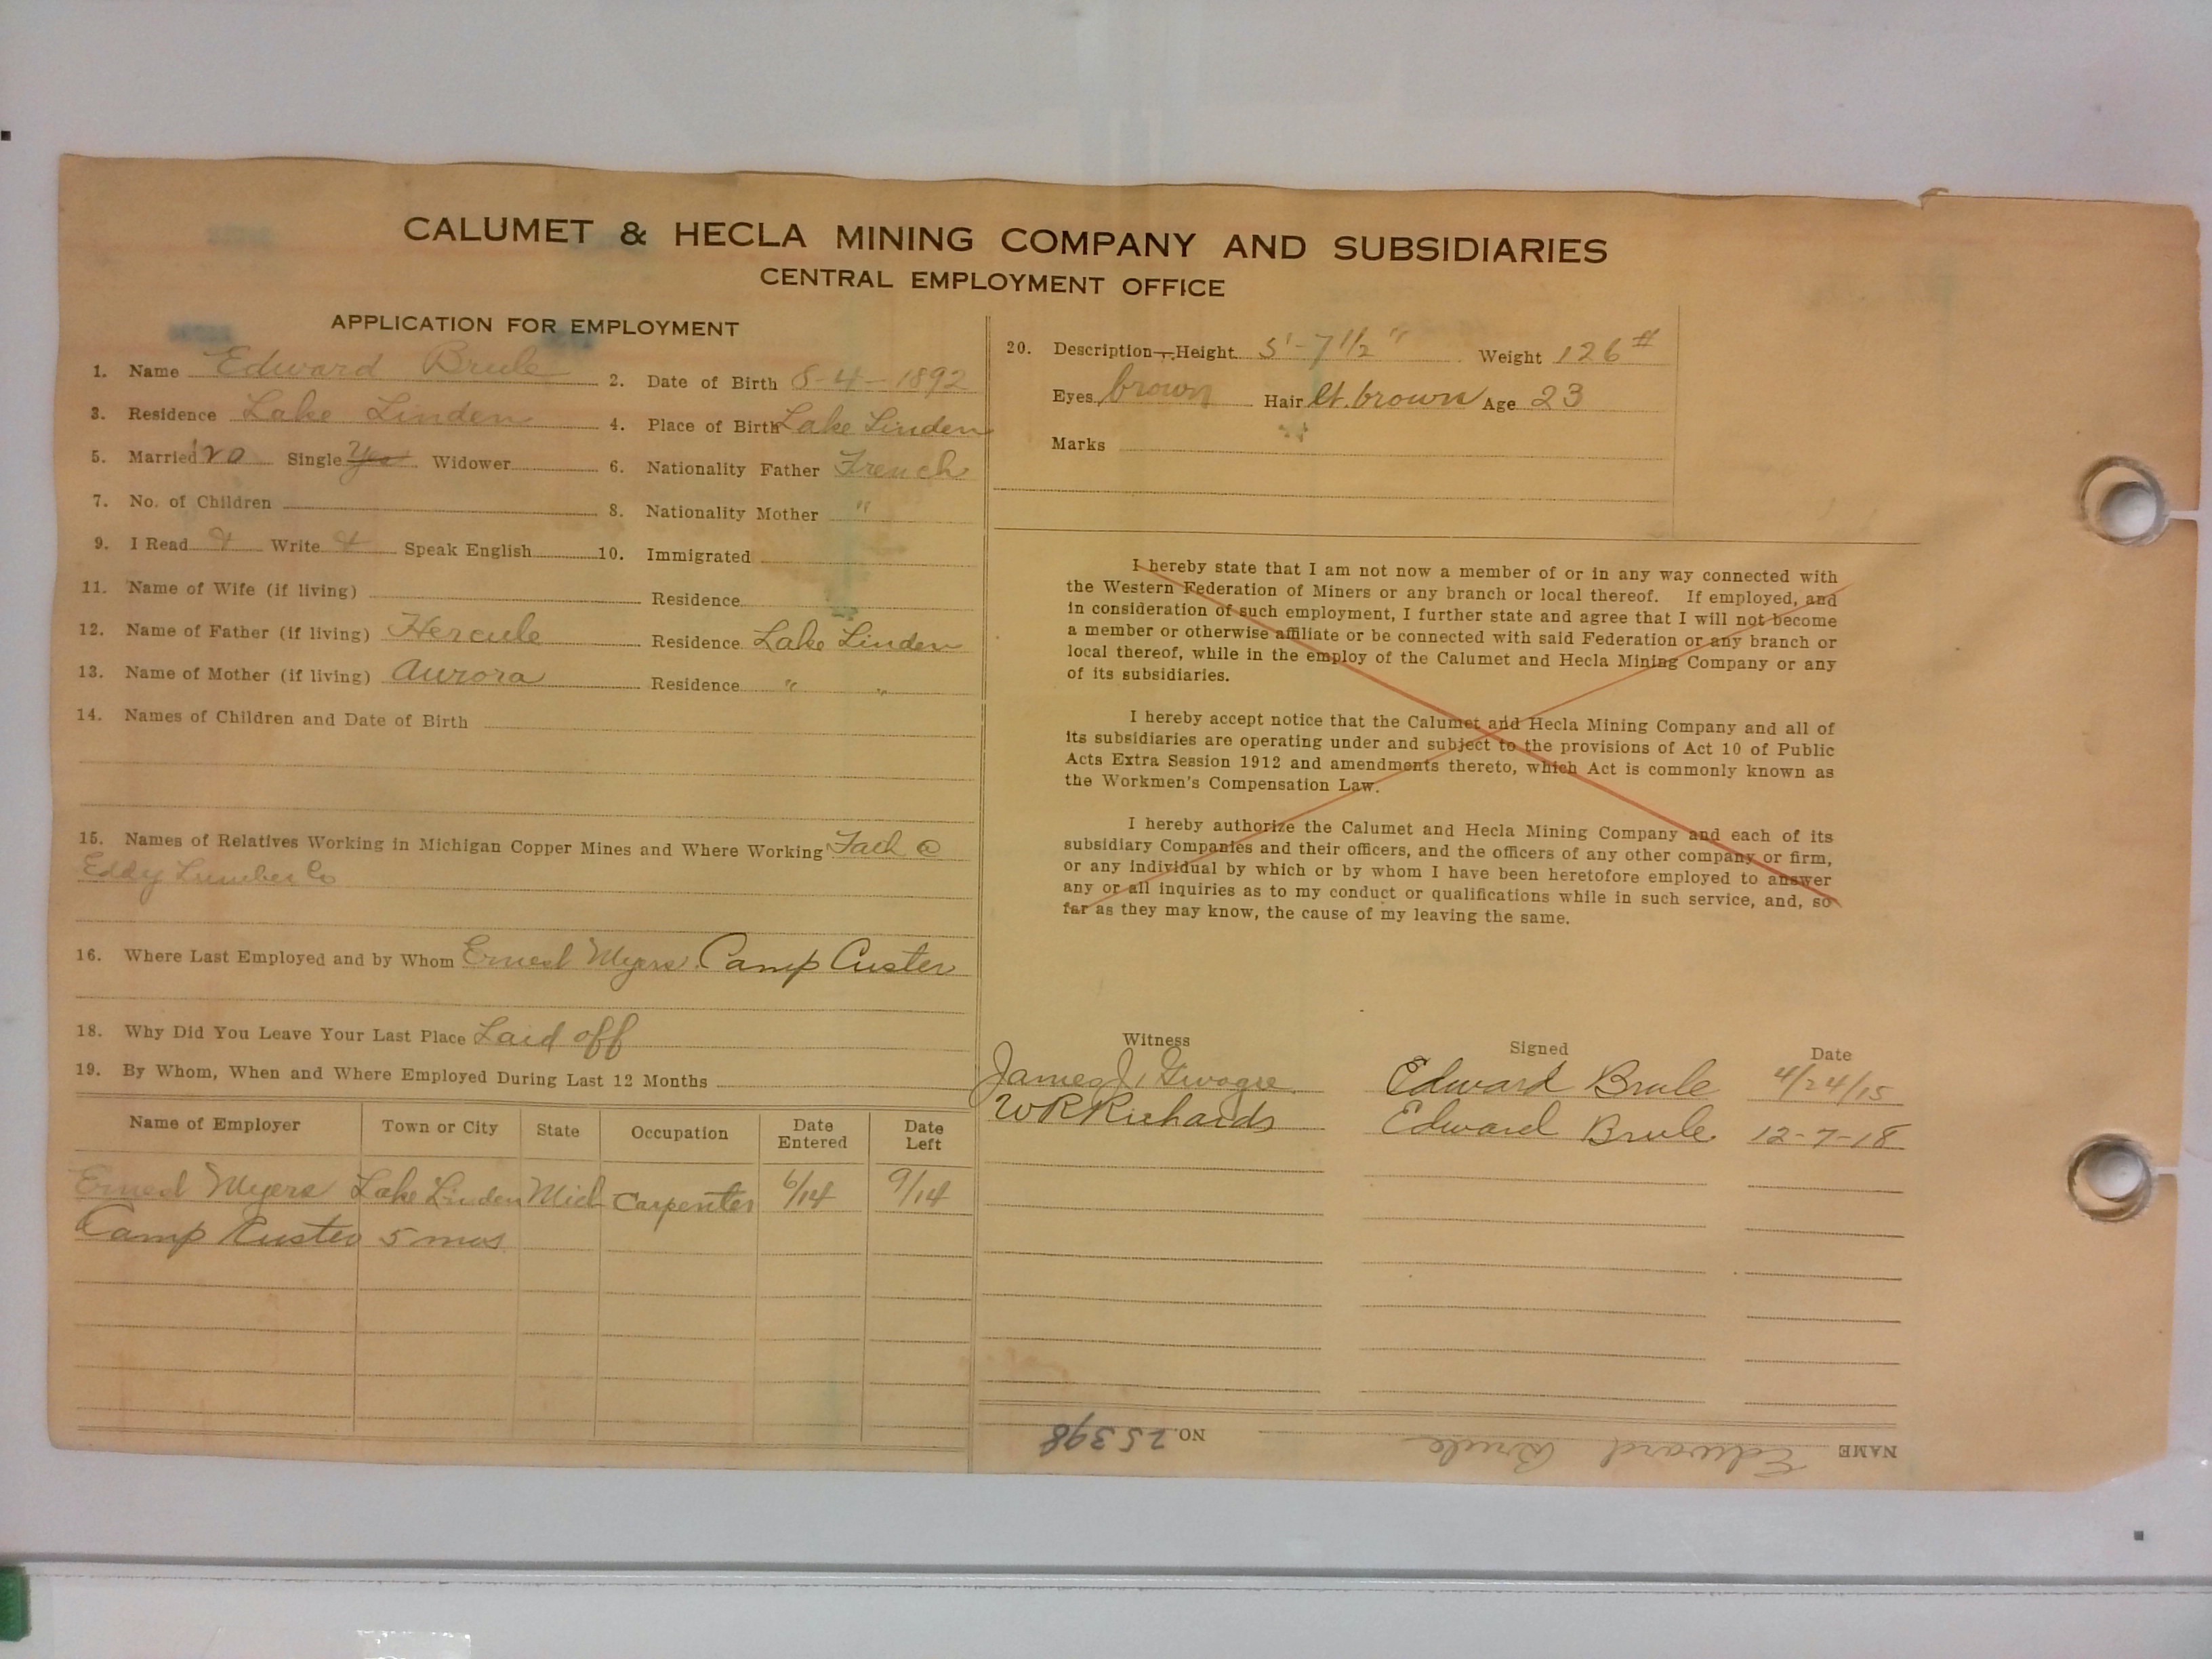 CALUMET & HECLA MINING COMPANY AND SUBSIDIARIES
CENTRAL EMPLOYMENT OFFICE
APPLICATION FOR EMPLOYMENT
1. Name Edward Brule 2. Date of Birth 8-4-1892
3. Residence Lake Linden 4. Place of Birth Lake Linden
5. Married no Single Yes Widower 6. Nationality Father French
7. No. of Children 8. Nationality Mother "
9. I Read Write Speak English 10. Immigrated
11. Name of Wife (if living) Residence
12. Name of Father (if living) Hercule Residence Lake Linden
13. Name of Mother (if living) Aurora Residence " "
14. Names of Children and Date of Birth
15. Names of Relatives Working in Michigan Copper Mines and Where Working Fath @
Eddy Lumber Co
16. Where Last Employed and by Whom Ernest Myers. Camp Custer
18. Why Did You Leave Your Last Place Laid off
19. By Whom, When and Where Employed During Last 12 Months
Name of Employer Town or City State Occupation Date Entered Date Left
Ernest Myers Lake Linden Mich Carpenter 6/14 9/14
Camp Custer 5 mos
20. Description—Height 5'-7 1/2" Weight 126#
Eyes brown Hair lt. brown Age 23
Marks
I hereby state that I am not now a member of or in any way connected with
the Western Federation of Miners or any branch or local thereof. If employed, and
in consideration of such employment, I further state and agree that I will not become
a member or otherwise affiliate or be connected with said Federation or any branch or
local thereof, while in the employ of the Calumet and Hecla Mining Company or any
of its subsidiaries.
I hereby accept notice that the Calumet and Hecla Mining Company and all of
its subsidiaries are operating under and subject to the provisions of Act 10 of Public
Acts Extra Session 1912 and amendments thereto, which Act is commonly known as
the Workmen's Compensation Law.
I hereby authorize the Calumet and Hecla Mining Company and each of its
subsidiary Companies and their officers, and the officers of any other company or firm,
or any individual by which or by whom I have been heretofore employed to answer
any or all inquiries as to my conduct or qualifications while in such service, and, so
far as they may know, the cause of my leaving the same.
Witness Signed Date
James J. Edward Brule 4/24/15
W R Richards Edward Brule 12-7-18
NAME Edward Brule NO. 25398